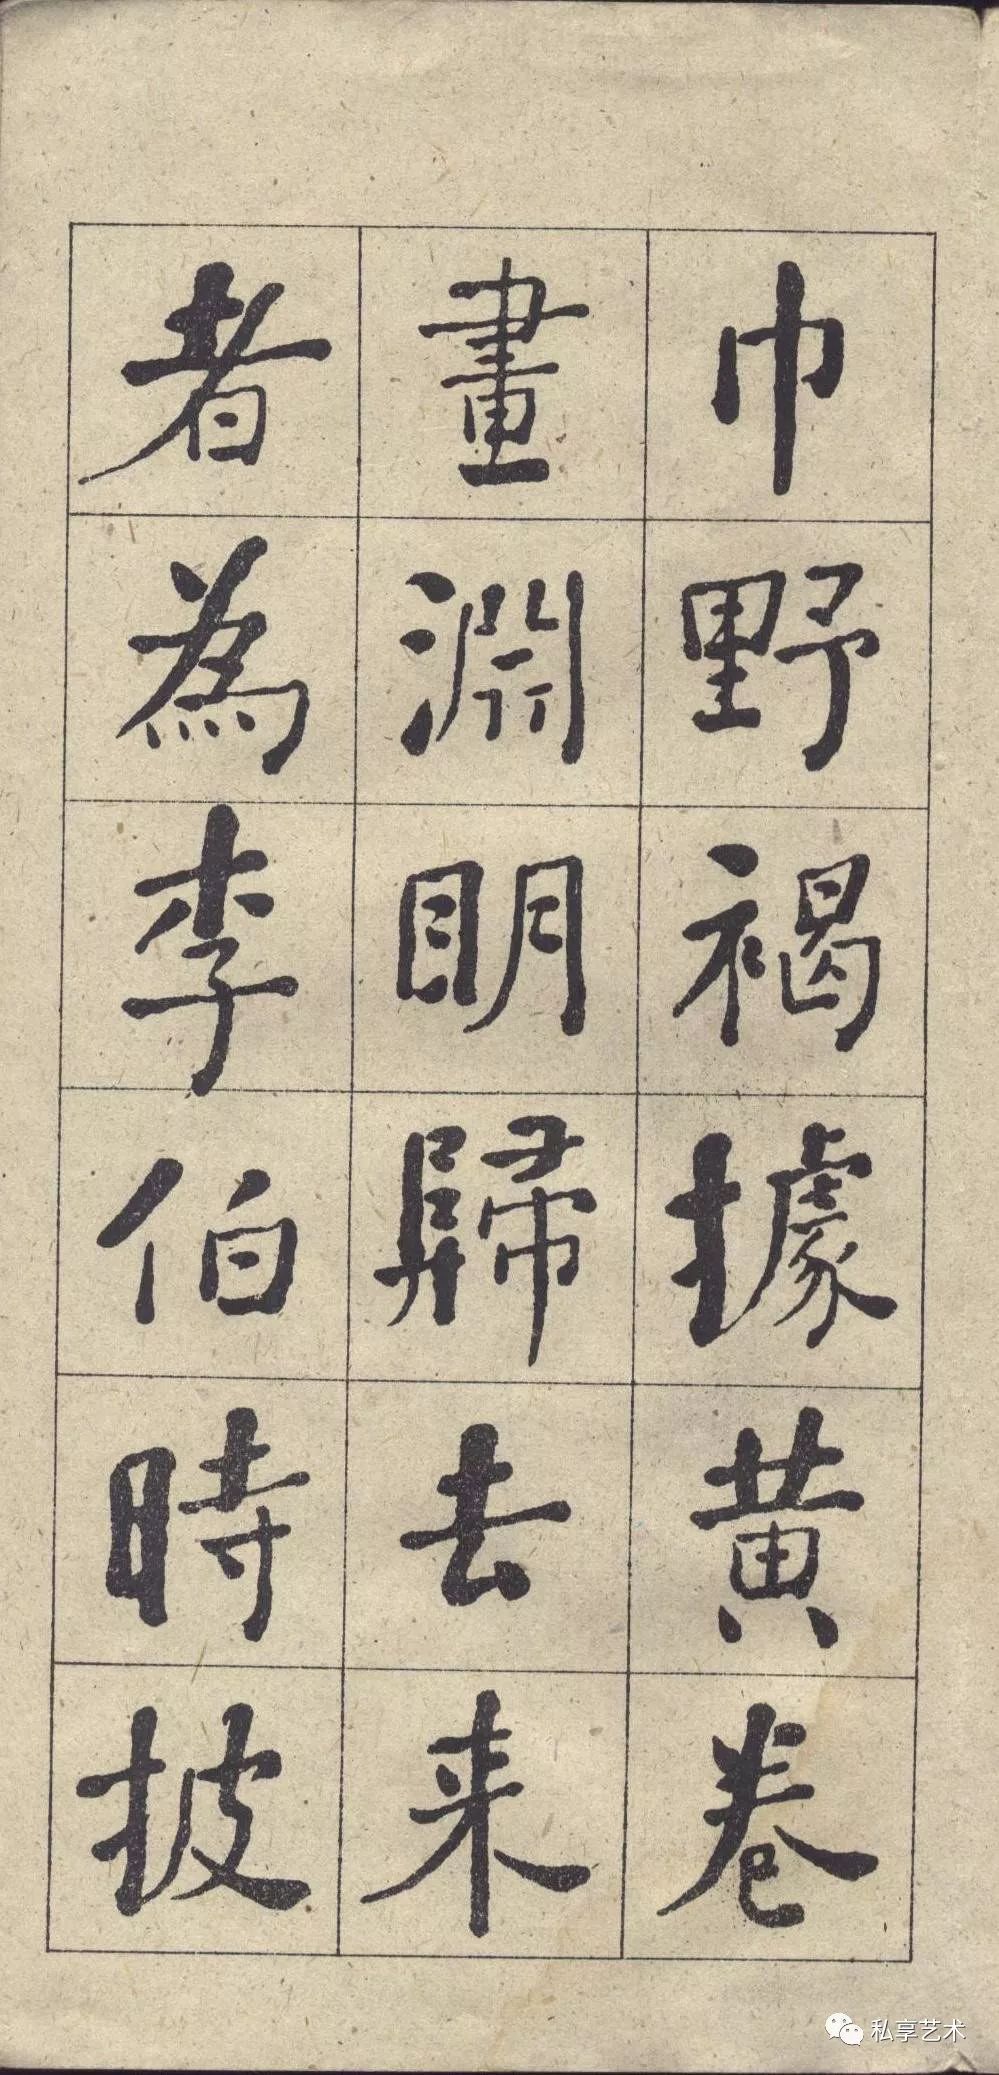 巾野褐據黄卷
畫淵明歸去来
者為李伯時披
私享艺术